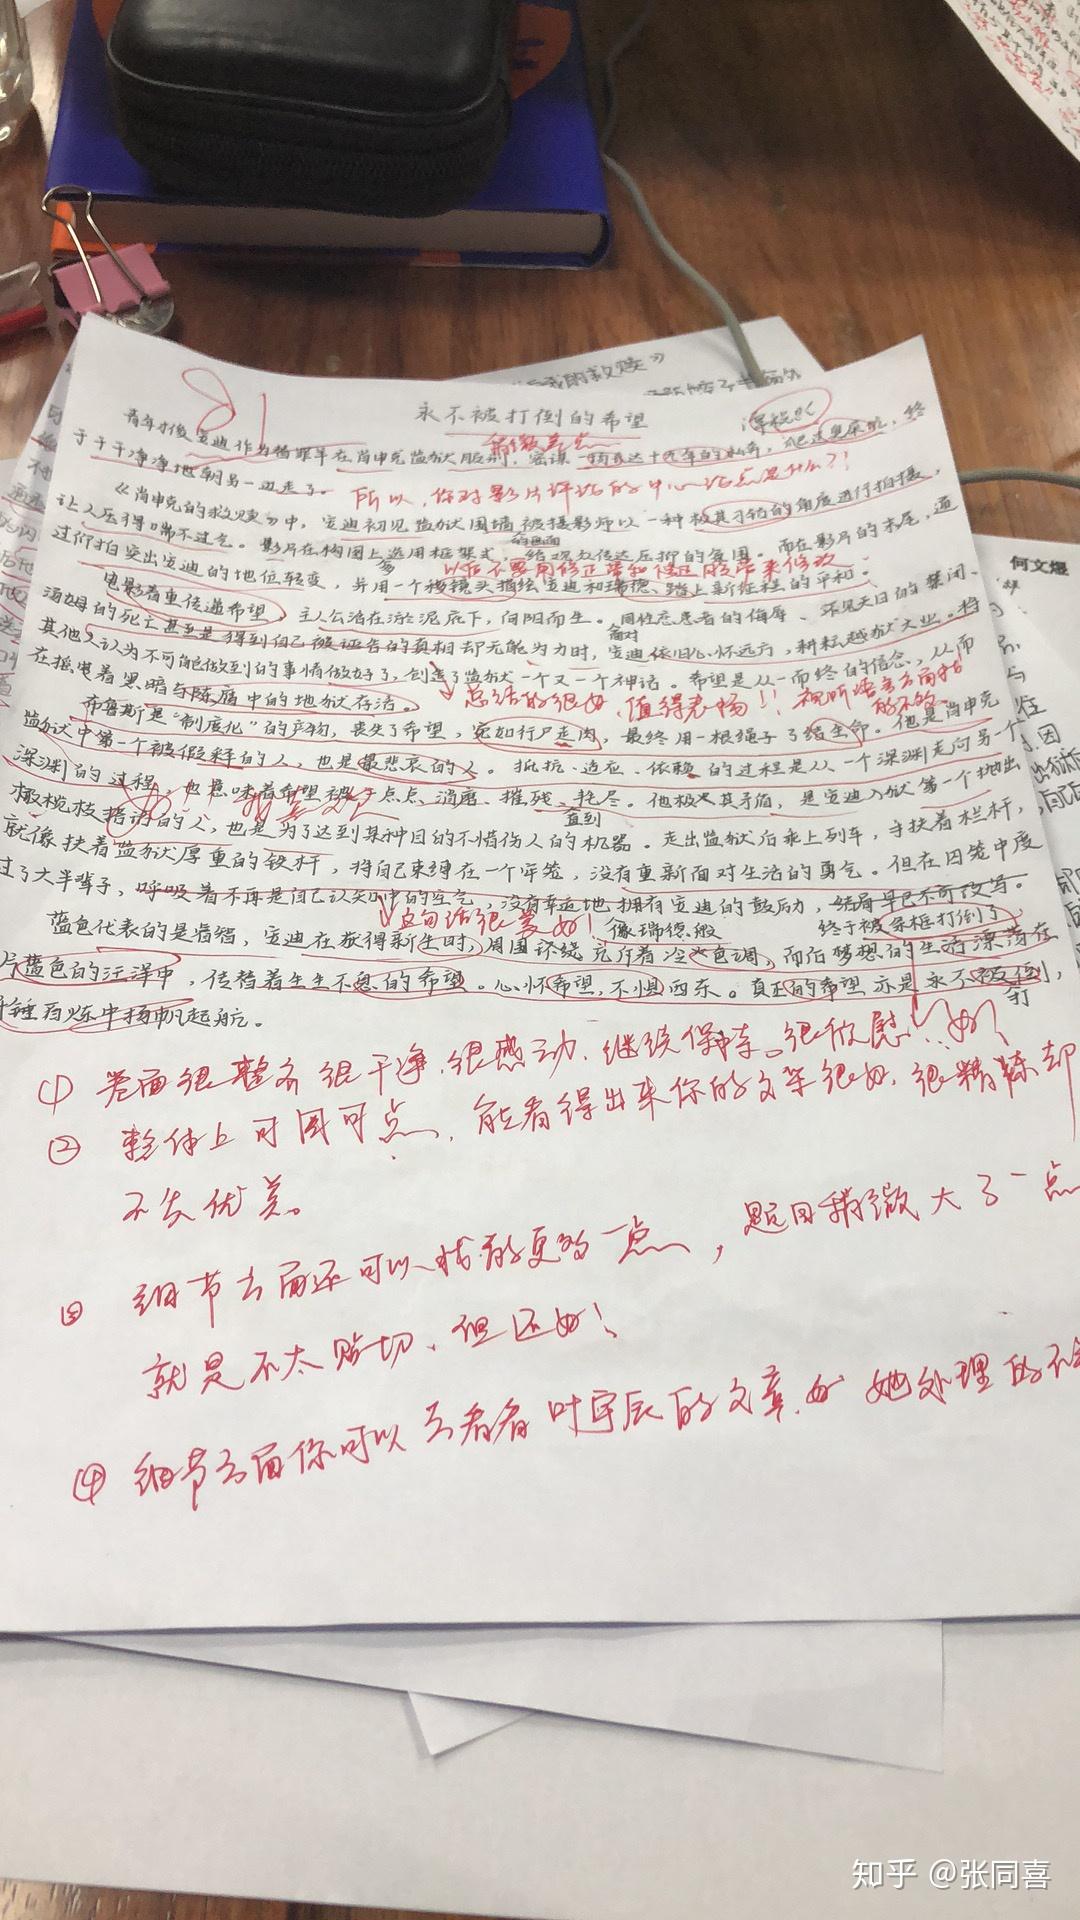 永不被打倒的希望
81
青年才俊安迪作为杨罪年在肖申克监狱服刑,密谋一场长达十九年的
干干净净地朝另一边走了。
所以,你对影片评论的中心论点是什么?!
《肖申克的救赎》中,安迪初见监狱围墙被摄影师以一种极其刁钻的角度进行拍摄,
让人压得喘不过气。影片在构图上选用框架式的画面给观众传达压抑的氛围。而在影片的末尾,通
以后不要用修正带和修正液来修改
过仰拍突出安迪的地位转变,并用一个移镜头描绘安迪和瑞德踏上新征程的平和。
电影着重传递希望。主人公活在淤泥底下,向阳而生。面对同性恋患者的侮辱、不见天日的禁闭、
汤姆的死亡甚至是得到自己被诬告的真相却无能为力时,安迪依旧心怀远方,耕耘越狱大业。将
其他人认为不可能做到的事情做好了,创造了监狱一个又一个神话。希望是从一而终的信念,从而
在摇曳着黑暗与陈腐中的地狱存活。
总结的很好,值得表扬!!视听语言方面
布鲁斯是“制度化”的产物,丧失了希望,宛如行尸走肉,最终用一根绳子了结生命。他是肖申克
监狱中第一个被假释的人,也是最悲哀的人。抵抗、适应、依赖的过程是从一个深渊走向另一个
深渊的过程,也意味着希望被一点点消磨、摧残、直到耗尽。他极其矛盾,是安迪入狱第一个抛出
橄榄枝搭讪的人,也是为了达到某种目的不惜伤人的机器。走出监狱后乘上列车,手扶着栏杆,
就像扶着监狱厚重的铁杆,将自己束缚在一个牢笼,没有重新面对生活的勇气。但在囚笼中度
过了大半辈子,呼吸着不再是自己认知中的空气,没有幸运地像瑞德般拥有安迪的鼓励,结局早已不可改写。
这句话很美好!
终于被条框打倒了
蓝色代表的是睿智,安迪在获得新生时,周围环绕充斥着冷色调,而后梦想的生活漂荡在
片蓝色的汪洋中,传替着生生不息的希望。心怀希望,不惧西东。真正的希望亦是永不被打倒,
千锤百炼中扬帆起航。
① 卷面很整齐很干净,很感动,继续保持。很欣慰!好!
② 整体上可圈可点,能看得出来你的文笔很好,很精炼却
不失优美。
③ 细节方面还可以找的更多一点,题目稍微大了一点
就是不太贴切,但还好!
④ 细节方面你可以去看看叶宇辰的文章,她处理的不
何文煜
知乎 @张同喜